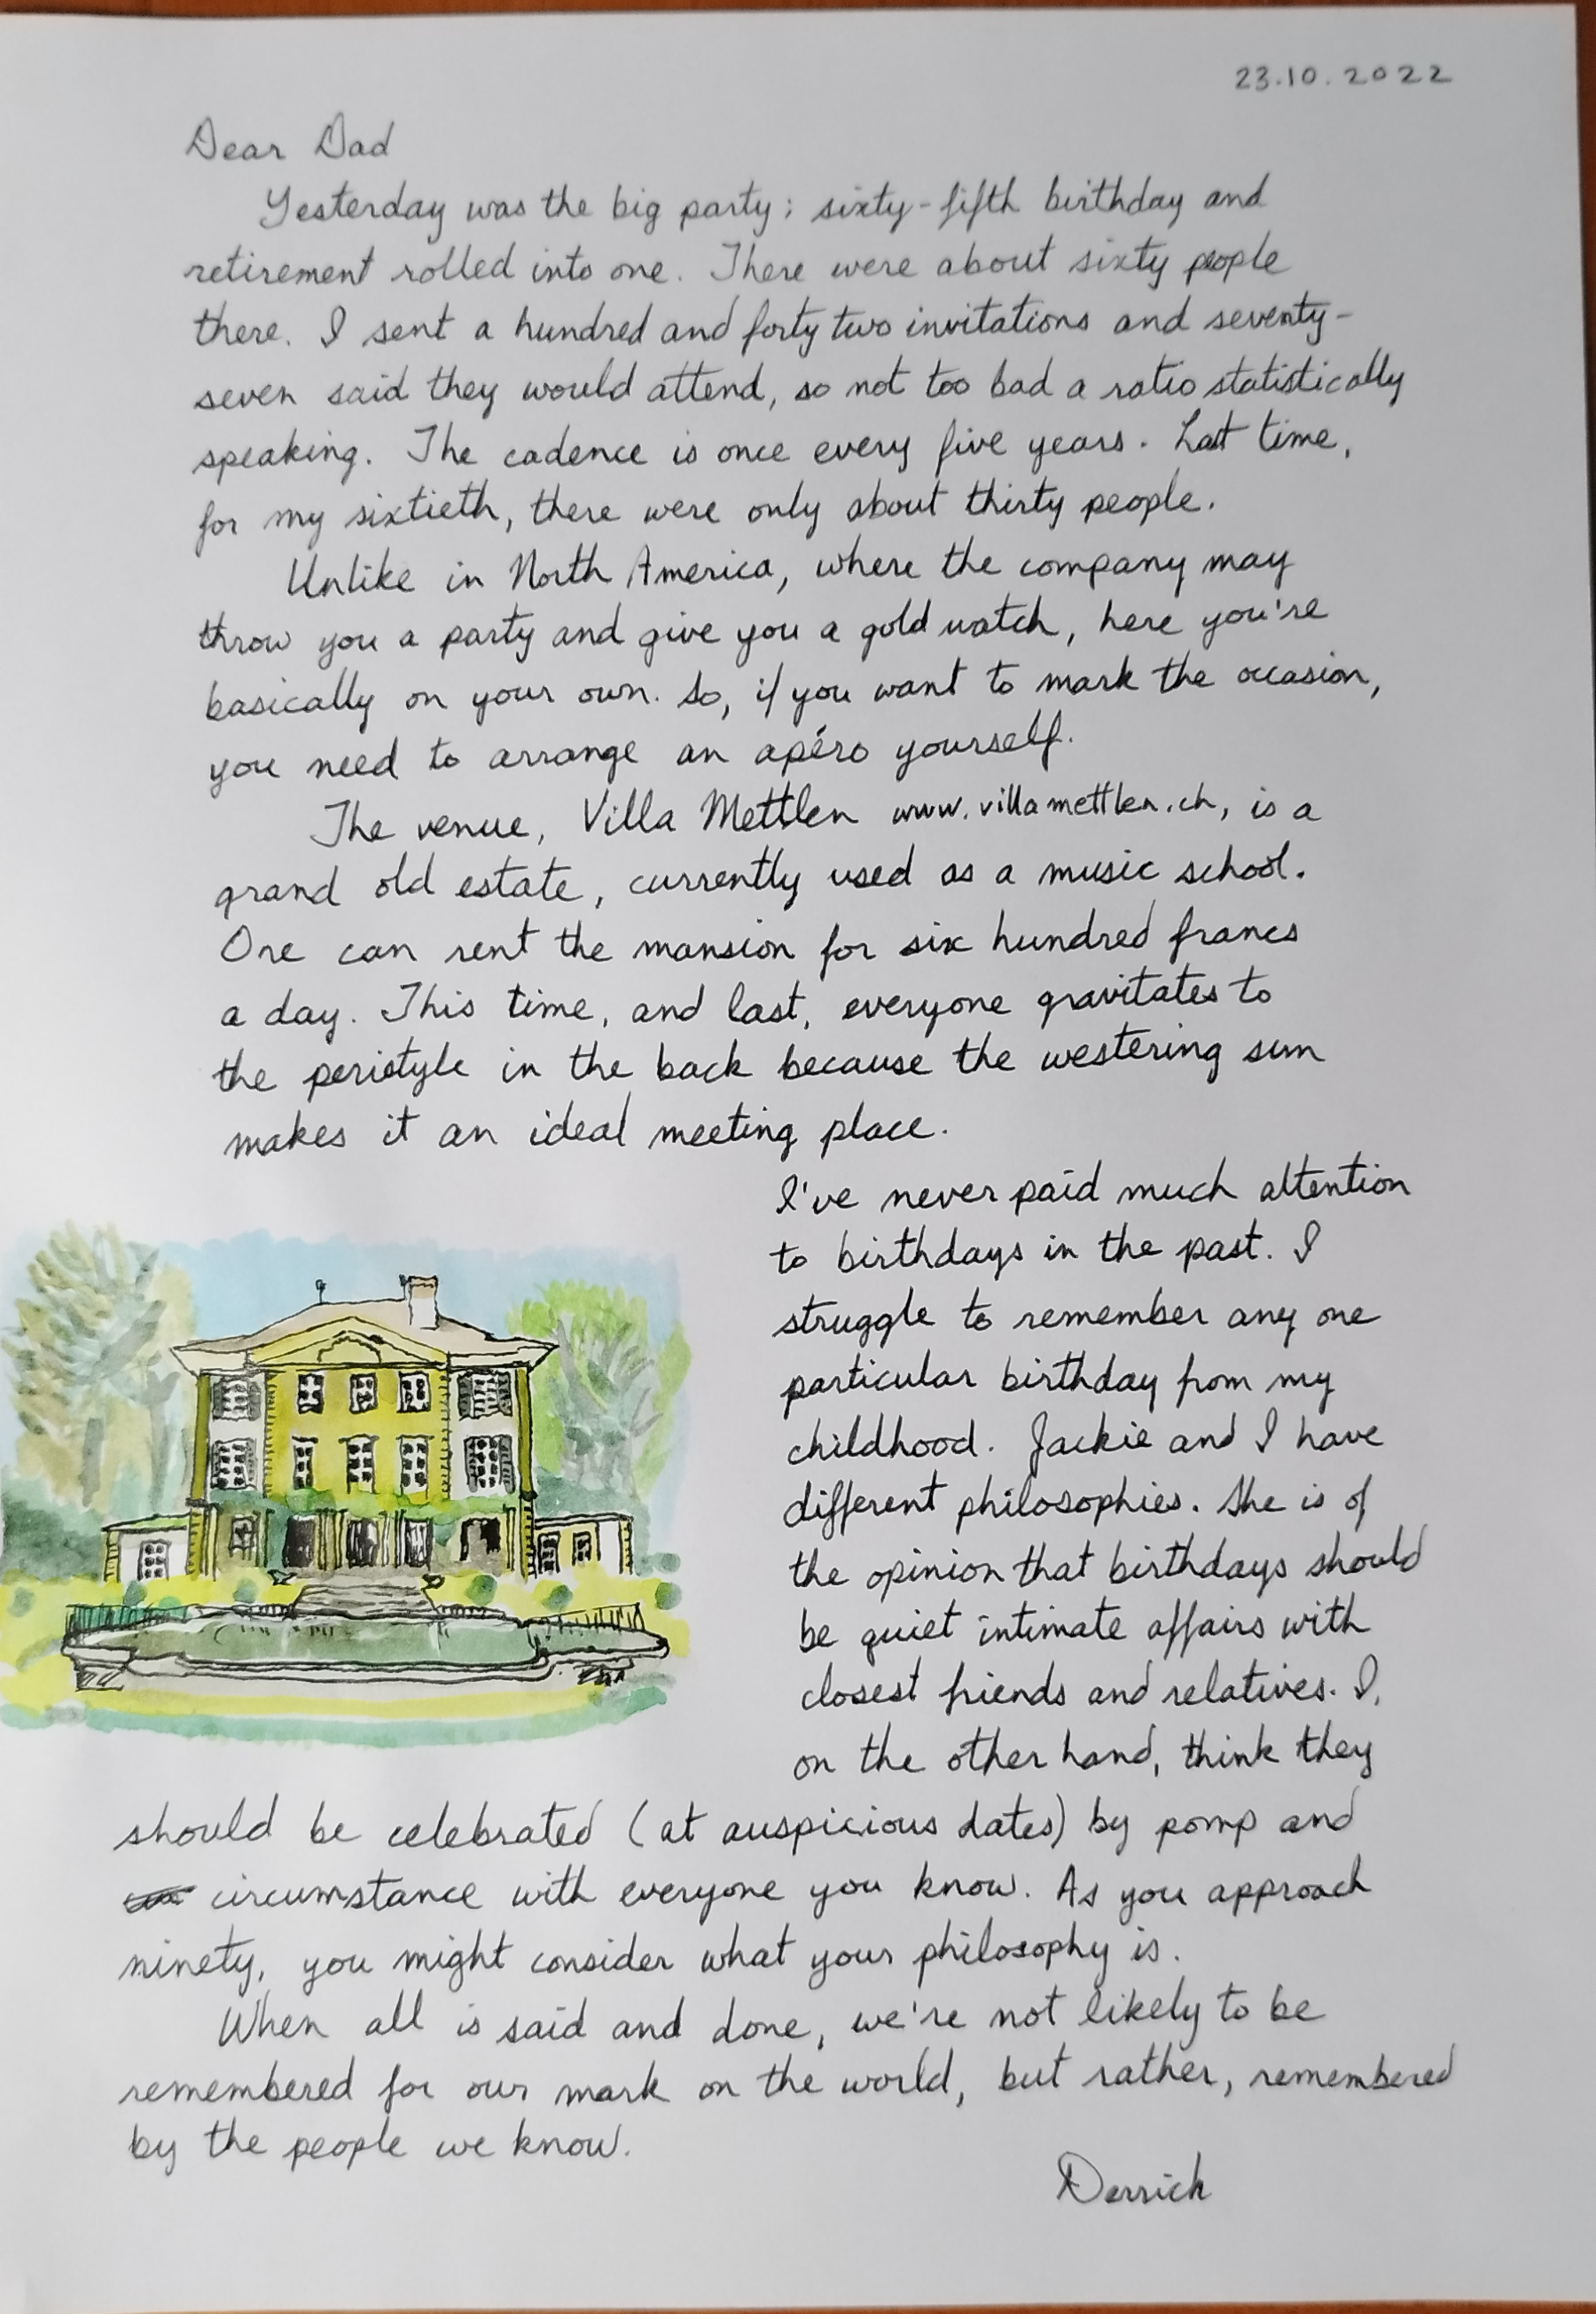 23.10.2022
Dear Dad
Yesterday was the big party; sixty-fifth birthday and
retirement rolled into one. There were about sixty people
there. I sent a hundred and forty two invitations and seventy-
seven said they would attend, so not too bad a ratio statistically
speaking. The cadence is once every five years. Last time,
for my sixtieth, there were only about thirty people.
Unlike in North America, where the company may
throw you a party and give you a gold watch, here you're
basically on your own. So, if you want to mark the occasion,
you need to arrange an apéro yourself.
The venue, Villa Mettlen www.villamettlen.ch, is a
grand old estate, currently used as a music school.
One can rent the mansion for six hundred francs
a day. This time, and last, everyone gravitates to
the peristyle in the back because the westering sun
makes it an ideal meeting place.
I've never paid much attention
to birthdays in the past. I
struggle to remember any one
particular birthday from my
childhood. Jackie and I have
different philosophies. She is of
the opinion that birthdays should
be quiet intimate affairs with
closest friends and relatives. I,
on the other hand, think they
should be celebrated (at auspicious dates) by pomp and
circumstance with everyone you know. As you approach
ninety, you might consider what your philosophy is.
When all is said and done, we're not likely to be
remembered for our mark on the world, but rather, remembered
by the people we know.
Derrick